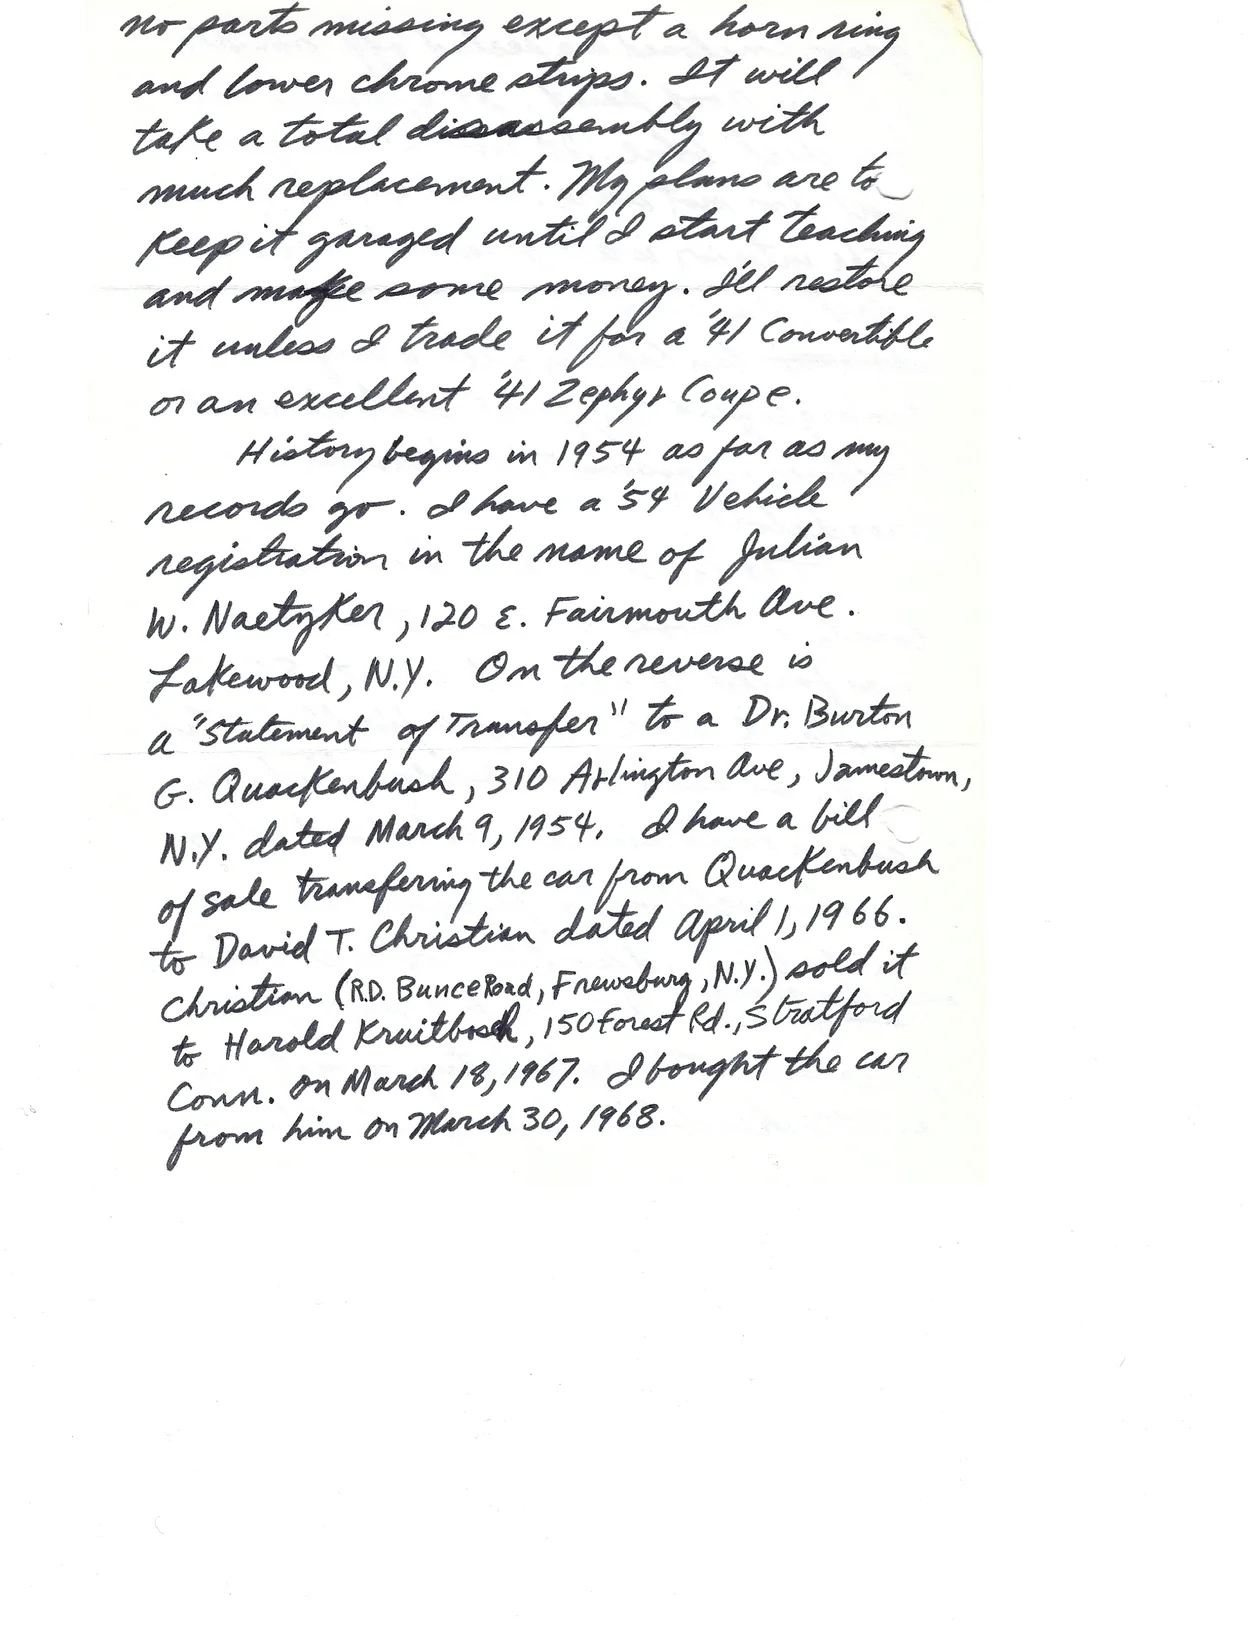 no parts missing except a horn ring
and lower chrome strips. It will
take a total disassembly with
much replacement. My plans are to
keep it garaged until I start teaching
and make some money. I'll restore
it unless I trade it for a '41 Convertible
or an excellent '41 Zephyr Coupe.
History begins in 1954 as far as my
records go. I have a '54 Vehicle
registration in the name of Julian
W. Naetzker, 120 E. Fairmouth Ave.
Lakewood, N.Y. On the reverse is
a "Statement of Transfer" to a Dr. Burton
G. Quackenbush, 310 Arlington Ave, Jamestown,
N.Y. dated March 9, 1954. I have a bill
of sale transferring the car from Quackenbush
to David T. Christian dated April 1, 1966.
Christian (R.D. Bunce Road, Frewsburg, N.Y.) sold it
to Harold Kruitbosch, 150 Forest Rd., Stratford
Conn. on March 18, 1967. I bought the car
from him on March 30, 1968.